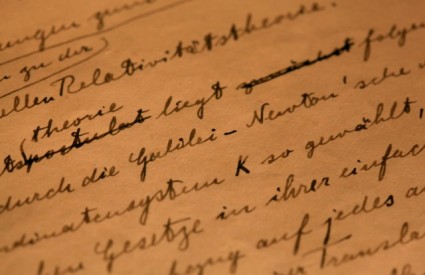 ungen zum
n zu der
ellen Relativitätstheorie.
theorie
tspostulat liegt zunächst folgen
durch die Galilei-Newton'sche
dinatensystem K so gewählt,
Gesetze in ihrer einfach
bezug auf jedes a
er Transla